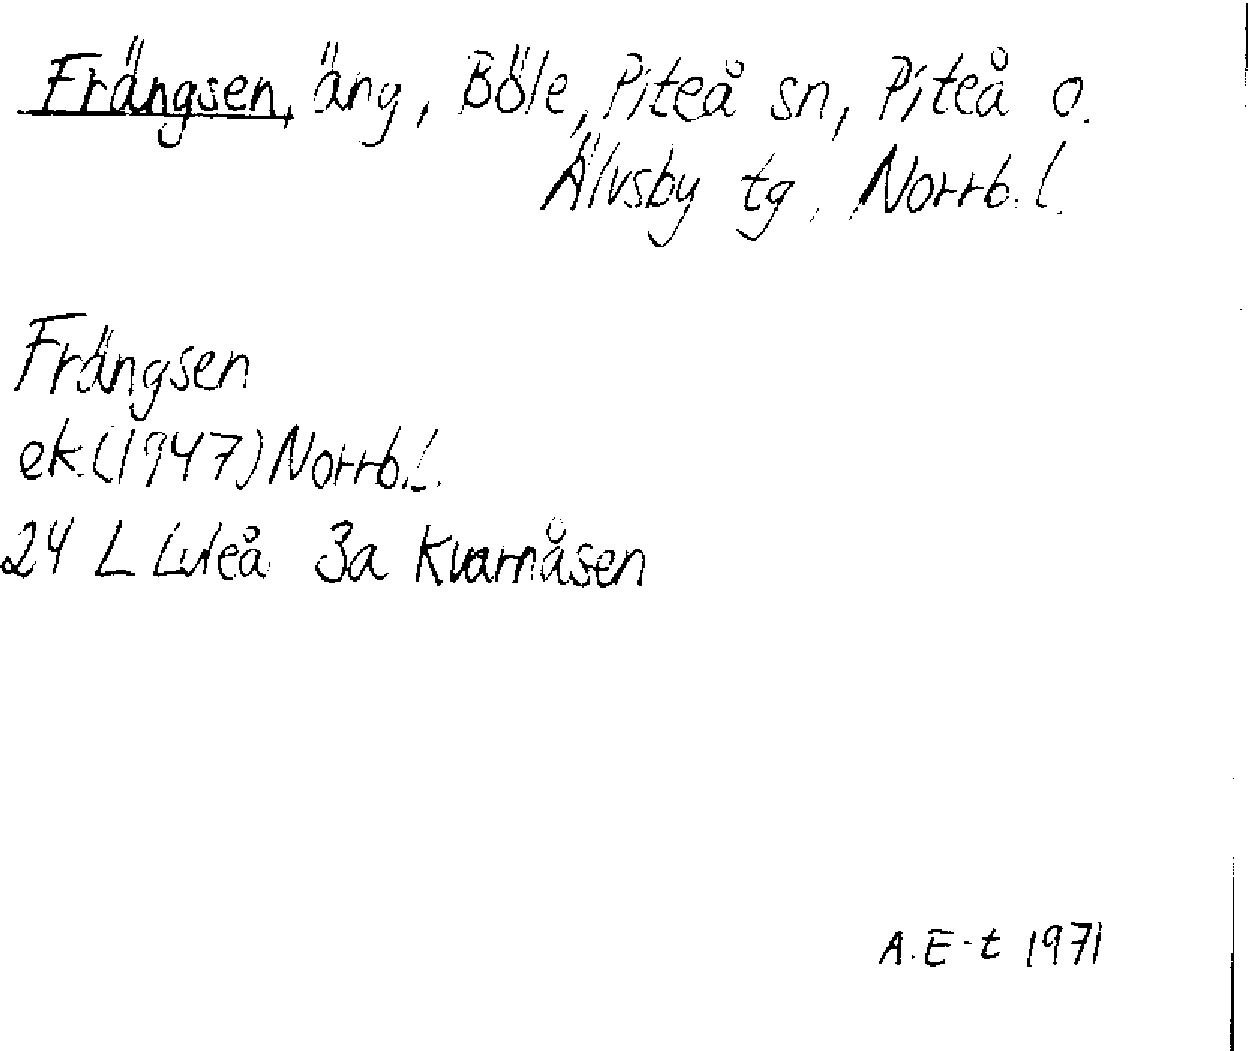 Frängsen, äng, Böle, Piteå sn, Piteå o.
Älvsby tg, Norrb. l.
Frängsen
ek (1947) Norrb. l.
24 L Luleå 3a Kvarnåsen
A. E-t 1971